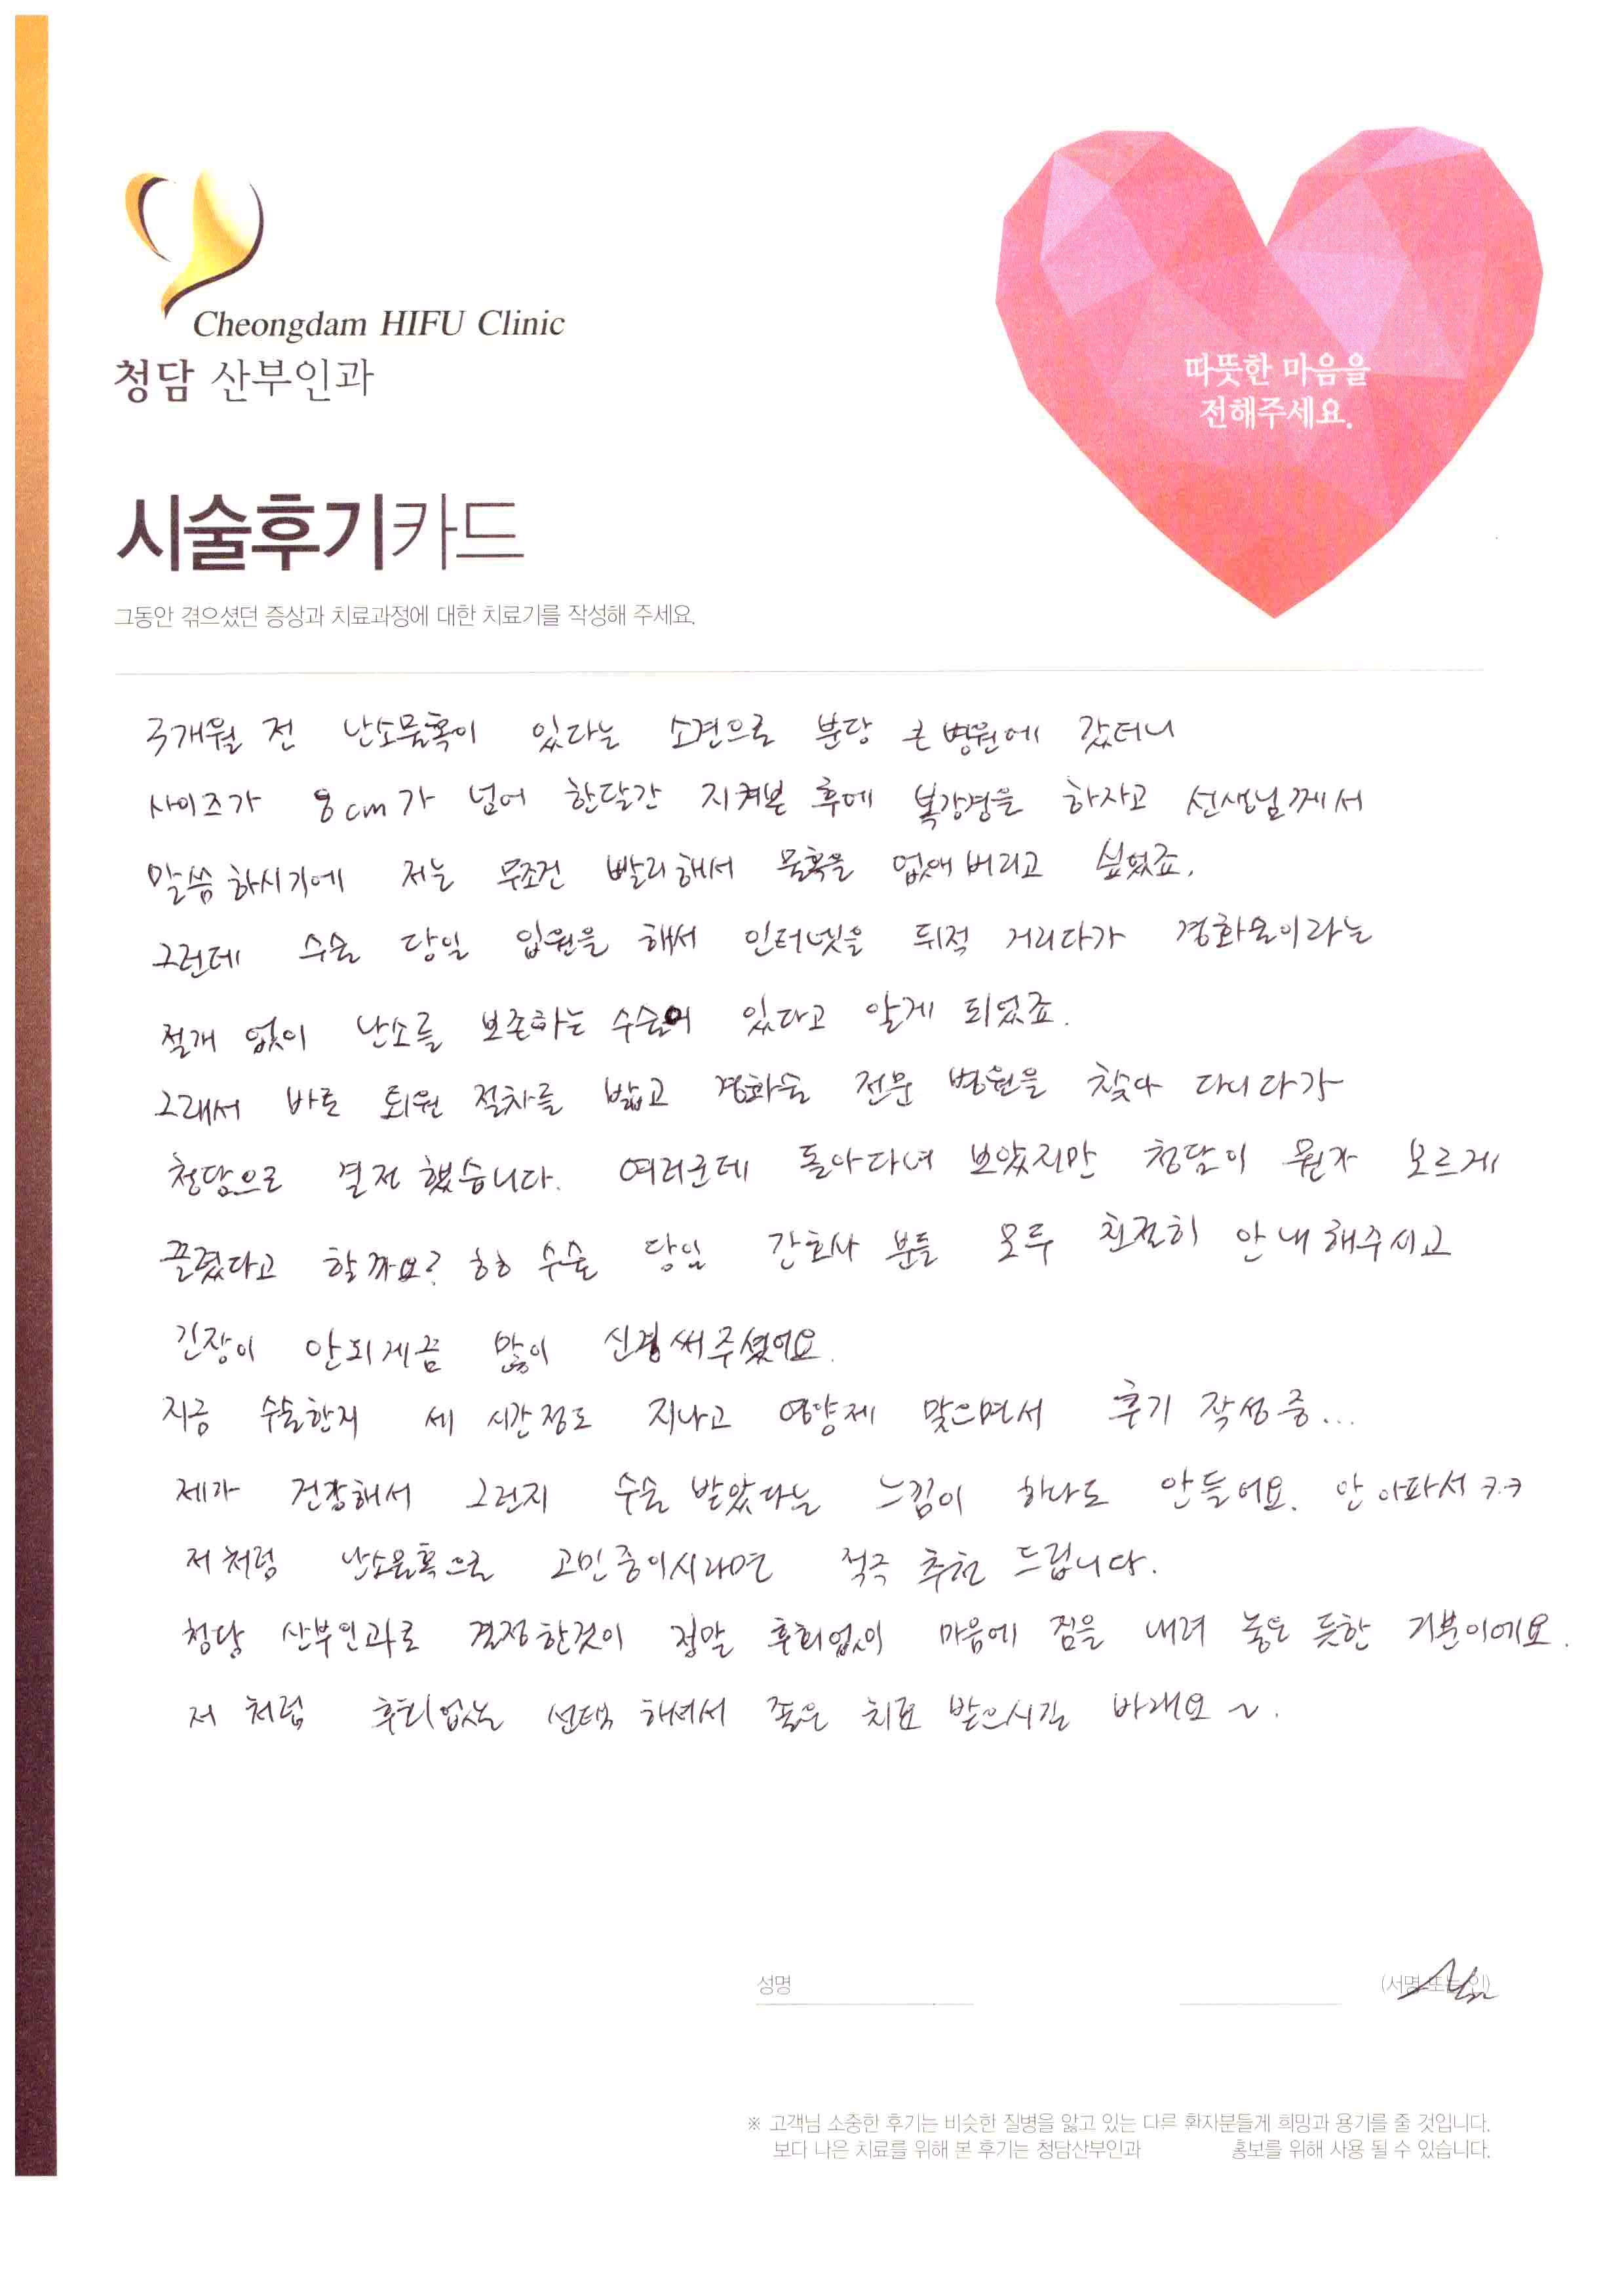 Cheongdam HIFU Clinic
청담 산부인과
따뜻한 마음을
전해주세요.
시술후기카드
그동안 겪으셨던 증상과 치료과정에 대한 치료기를 작성해 주세요.
3개월 전 난소물혹이 있다는 소견으로 분당 큰 병원에 갔더니
사이즈가 8cm가 넘어 한달간 지켜본 후에 복강경을 하자고 선생님께서
말씀 하시기에 저는 무조건 빨리해서 물혹을 없애 버리고 싶었죠.
그런데 수술 당일 입원을 해서 인터넷을 뒤적 거리다가 경화술이라는
절개 없이 난소를 보존하는 수술이 있다고 알게 되었죠.
그래서 바로 퇴원 절차를 밟고 경화술 전문 병원을 찾아 다니다가
청담으로 결정 했습니다. 여러군데 돌아다녀 보았지만 청담이 뭔가 모르게
끌렸다고 할까요? ㅎㅎ 수술 당일 간호사 분들 모두 친절히 안내해주시고
긴장이 안되게끔 많이 신경써주셨어요.
지금 수술한지 세 시간정도 지나고 영양제 맞으면서 후기 작성중...
제가 건강해서 그런지 수술 받았다는 느낌이 하나도 안들어요. 안아파서 ㅋㅋ
저처럼 난소물혹으로 고민중이시라면 적극 추천 드립니다.
청담 산부인과로 결정한것이 정말 후회없이 마음에 짐을 내려 놓은 듯한 기분이에요.
저 처럼 후회없는 선택 하셔서 좋은 치료 받으시길 바래요~.
성명 (서명 또는 인)
※ 고객님 소중한 후기는 비슷한 질병을 앓고 있는 다른 환자분들게 희망과 용기를 줄 것입니다.
보다 나은 치료를 위해 본 후기는 청담산부인과 홍보를 위해 사용 될 수 있습니다.